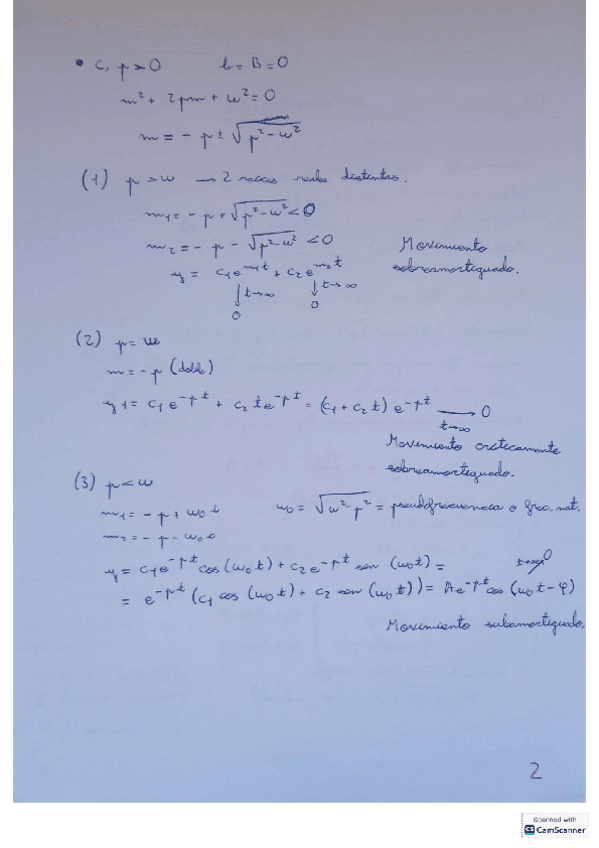 • c, p > 0 b = B = 0
m² + 2pm + w² = 0
m = - p ± √(p² - w²)
(1) p > w → 2 raíces reales distintas.
m₁ = - p + √(p² - w²) < 0
m₂ = - p - √(p² - w²) < 0
y = c₁e^(m₁t) + c₂e^(m₂t)
↓ t→∞ ↓ t→∞
0 0
Movimiento
sobreamortiguado.
(2) p = w
m = - p (doble)
y = c₁e^(-pt) + c₂te^(-pt) = (c₁ + c₂t) e^(-pt) → 0
t→∞
Movimiento críticamente
sobreamortiguado.
(3) p < w
m₁ = - p + w₀i w₀ = √(w² - p²) = pseudofrecuencia o frec. nat.
m₂ = - p - w₀i
y = c₁e^(-pt) cos (w₀t) + c₂e^(-pt) sen (w₀t) =
= e^(-pt) (c₁ cos (w₀t) + c₂ sen (w₀t)) = Ae^(-pt) cos (w₀t - φ) t→∞ 0
Movimiento subamortiguado.
2
Scanned with
CS CamScanner